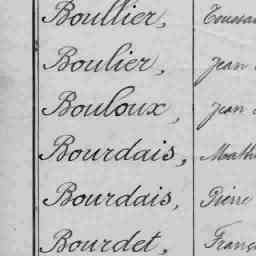 Boullier, Toussai
Boulier, Jean
Bouloux, Jean
Bourdais, Math
Bourdais, Pierre
Bourdet, Franç